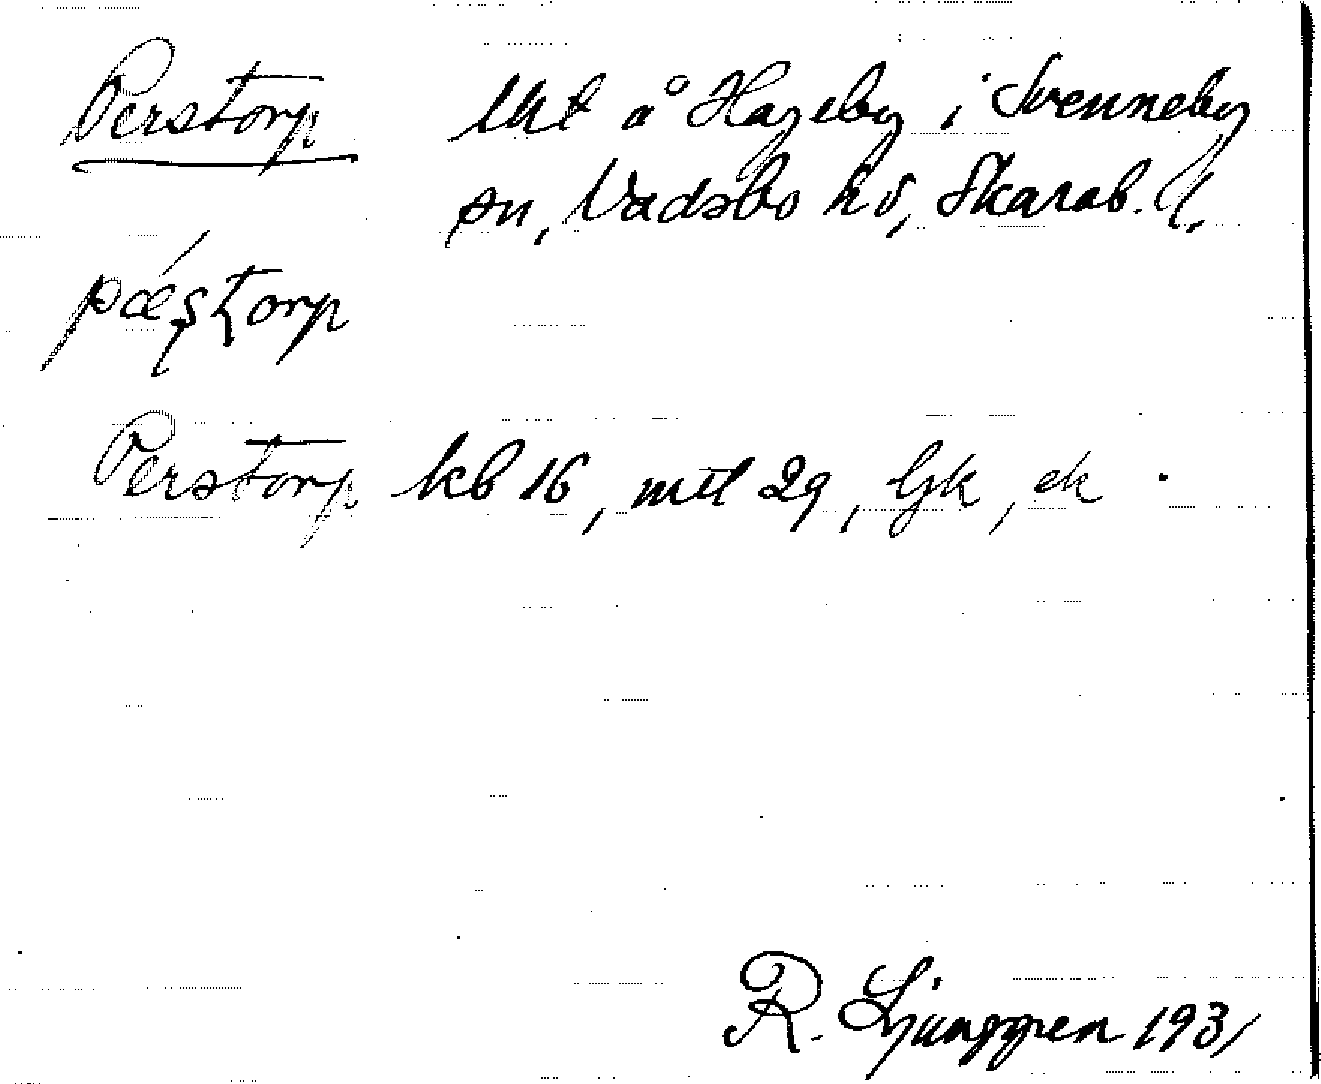 Perstorp lht å Hageby i Svenneby
sn, Vadsbo hd, Skarab. l.
pæ´ştorp
Perstorp kb 16, mtl 29, Gk, ek.
R. Ljunggren 1931